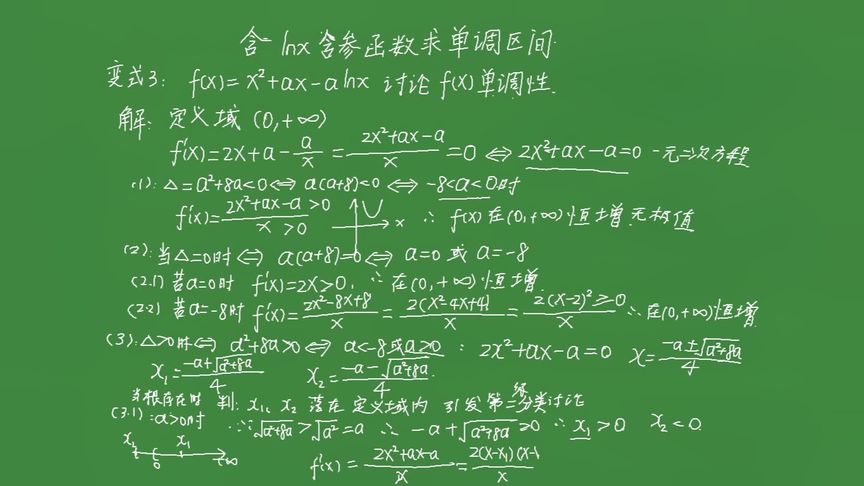 含 lnx 含参函数求单调区间
变式3: f(x)=x²+ax-alnx 讨论 f(x)单调性.
解: 定义域 (0,+∞)
f'(x)=2x+a-a/x=(2x²+ax-a)/x=0 ⇔ 2x²+ax-a=0 一元二次方程
(1): △=a²+8a<0⇔ a(a+8)<0 ⇔ -8<a<0时
f'(x)=(2x²+ax-a)/x >0 x>0 x ∴ f(x)在(0,+∞)恒增 无极值
(2):当△=0时⇔ a(a+8)=0⇔ a=0 或 a=-8
(2.1) 若a=0时 f'(x)=2x>0, ∴ 在(0,+∞)恒增.
(2.2) 若a=-8时 f'(x)=(2x²-8x+8)/x=2(x²-4x+4)/x=2(x-2)²/x≥0 ∴ 在(0,+∞)恒增
(3):△>0时⇔ a²+8a>0 ⇔ a<-8或a>0 : 2x²+ax-a=0 x=(-a±√(a²+8a))/4
x₁=(-a+√(a²+8a))/4 x₂=(-a-√(a²+8a))/4
当根存在时 判: x₁, x₂ 落在 定义域内 引发第二级分类讨论
(3.1):a>0时 ∵√(a²+8a)>√a²=a ∴ -a+√(a²+8a)>0 ∴ x₁>0 x₂<0
x₂ 0 x₁ +∞
f'(x)=(2x²+ax-a)/x=2(x-x₁)(x-x